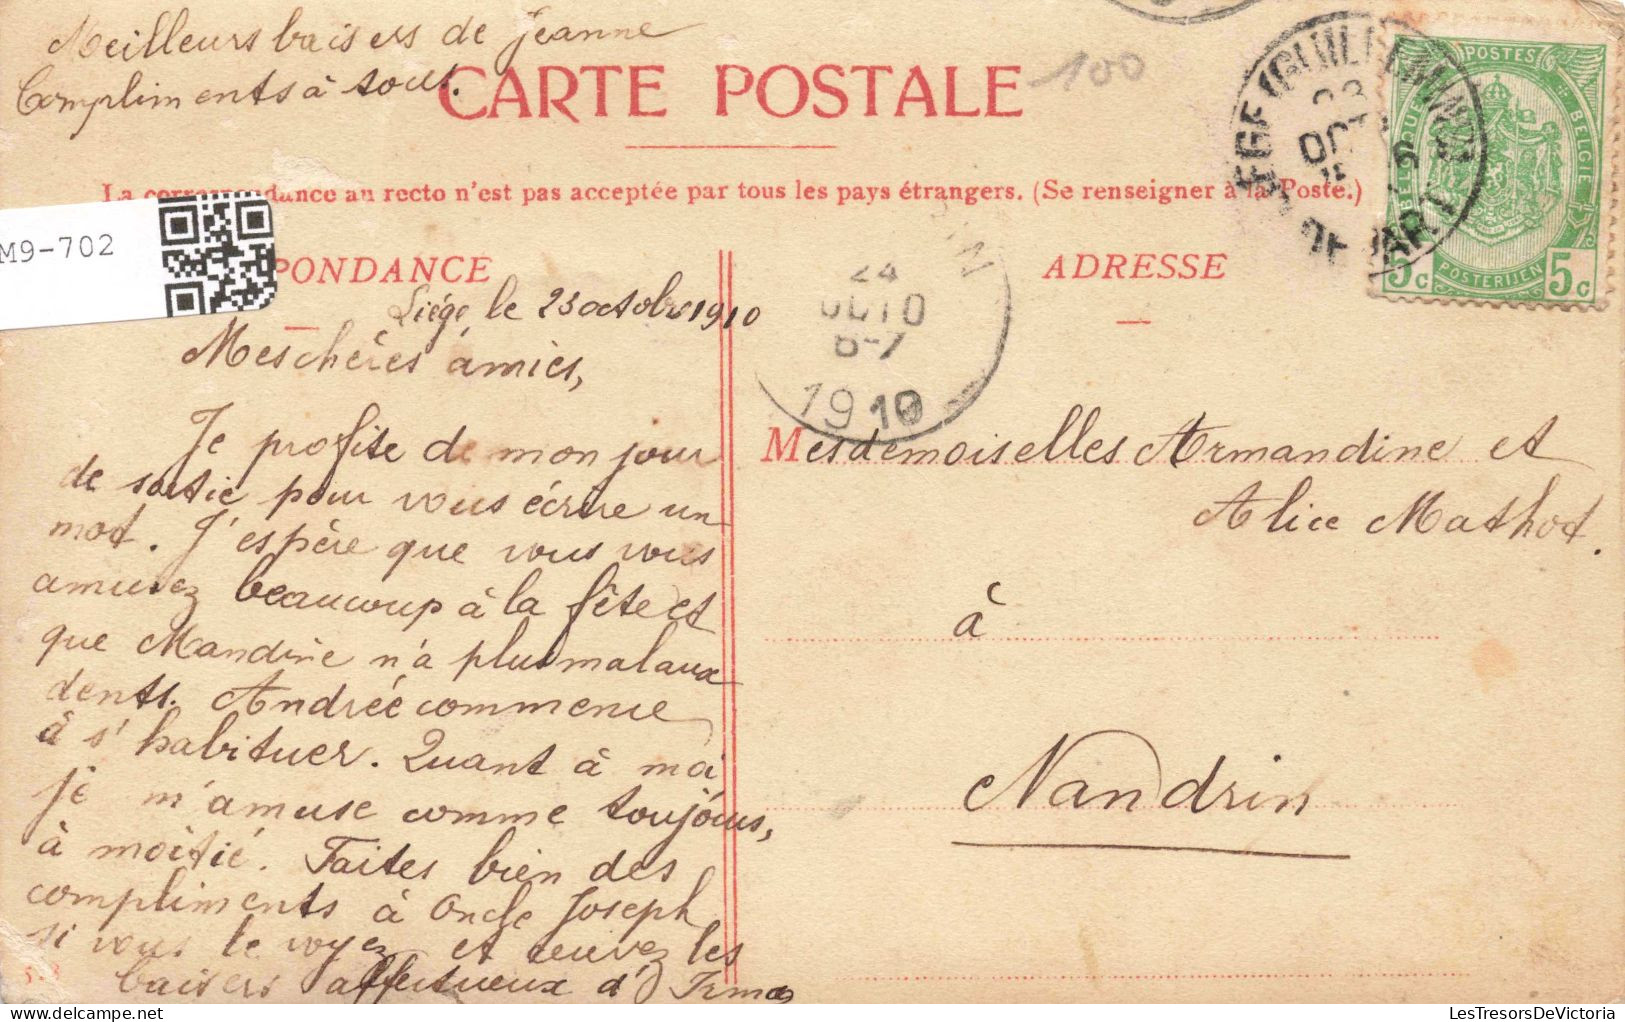 Meilleurs baisers de Jeanne
Compliments à tous.
CARTE POSTALE
100
POSTES
BELGIQUE
BELGIE
5c POSTERIJEN 5c
DEPART
La correspondance au recto n'est pas acceptée par tous les pays étrangers. (Se renseigner à la Poste.)
M9-702
PONDANCE
ADRESSE
24
OCT 10
6-7
1910
Liége le 23 octobre 1910
Mes chères amies,
Je profite de mon jour
de sortie pour vous écrire un
mot. J'espère que vous vous
amusez beaucoup à la fête et
que Mandine n'a plus mal aux
dents. Andrée commence
à s'habituer. Quant à moi
je m'amuse comme toujours,
à moitié. Faites bien des
compliments à Oncle Joseph
si vous le voyez et recevez les
baisers affectueux d'Irma
Mesdemoiselles Armandine et
Alice Mathot.
à
Nandrin
LesTresorsDeVictoria